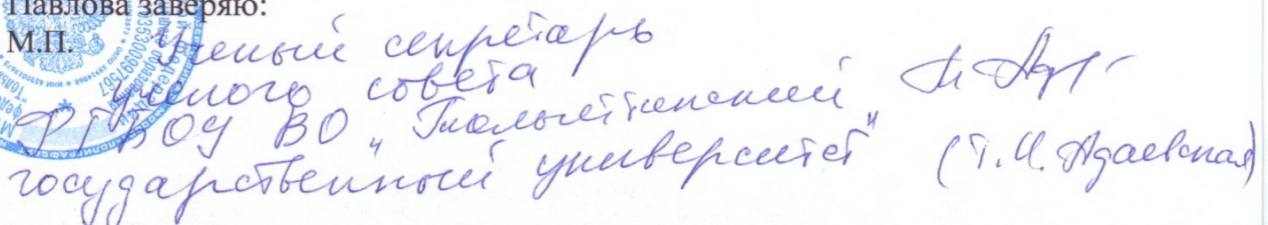 Павлова заверяю:
М.П. Ученый секретарь
ученого совета
ФГБОУ ВО „Тольяттинский
государственный университет" (Т.И. Адаевская)